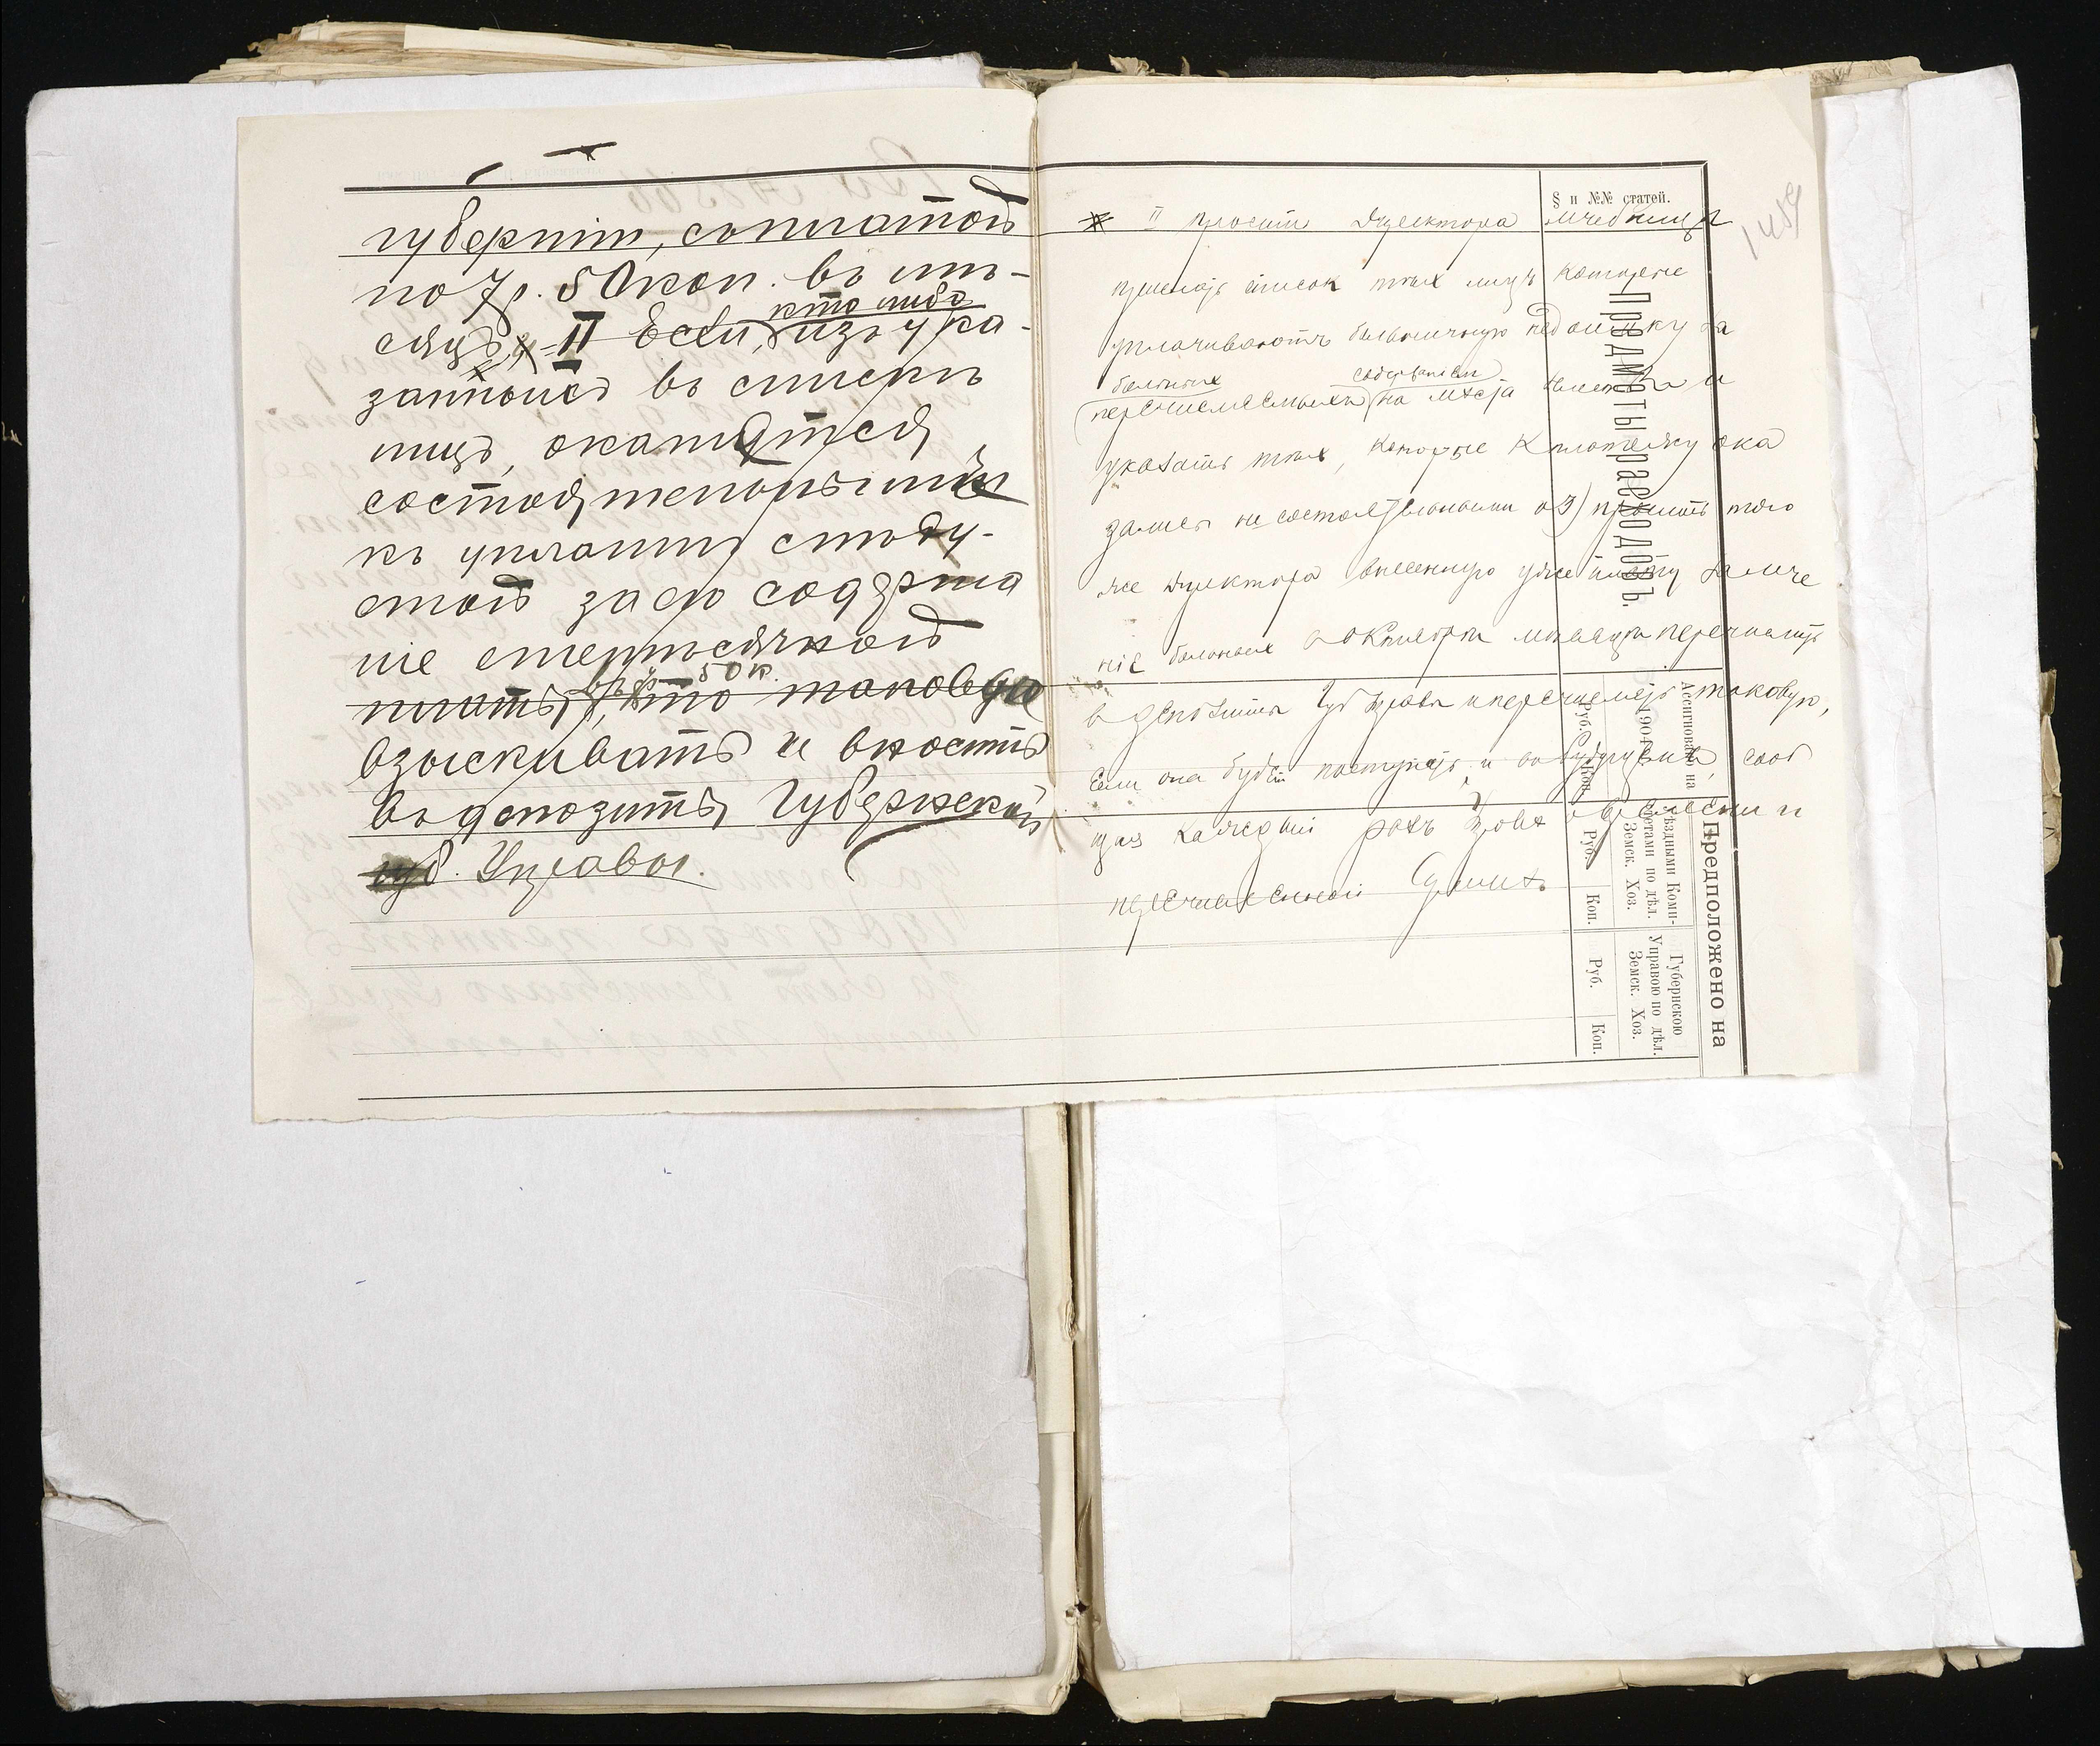 губерніи, съ платой
по 7 р. 50 коп. въ мѣ-
сяцъ, II Если, кто либо изъ ука-
занныхъ въ спискѣ
лицъ, окажутся
состоятельными
къ уплатѣ слѣду-
емой за ихъ содержа
ніе ежемѣсячной
платы, въ 7 р. 50 к. то таковую
взыскивать и вносить
въ депозитъ Губернской
губ. Управы.
II просить Директора лечебницы
прислать список тѣх лицъ которые
уплачиваютъ больничную недоимку за
больных содержаніем
перечисленных на мѣста и
указать тѣх, которые к платежу ока
зались не состоятельными и 3) просить того
же Директора внесенную уже плату за лече
ніе больных в октябрѣ мѣсяцѣ перечислить
в депозиты Губ Управы и перечислять таковую,
Если она будет поступать и въ будущемъ, сооб
щая каждый разъ Управѣ о времени и
перечисленной суммѣ
§ и №№ статей.
Предметы расходовъ.
Ассигновано на
190
Руб. Коп.
Предположено на
Уѣздными Коми-
тетами по дѣл.
Земск. Хоз.
Руб. Коп.
Губернскою
Управою по дѣл.
Земск. Хоз.
Руб. Коп.